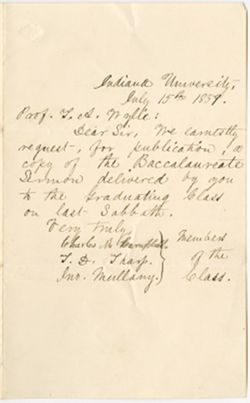 Indiana University,
July 15th 1859.
Prof. T. A. Wylie:
Dear Sir, We earnestly
request, for publication, a
copy of the Baccalaureate
Sermon delivered by you
to the Graduating Class
on last Sabbath.
Very truly
Charles M. Campbell. Members
T. D. Tharp. of the
Jno. Mullany. Class.